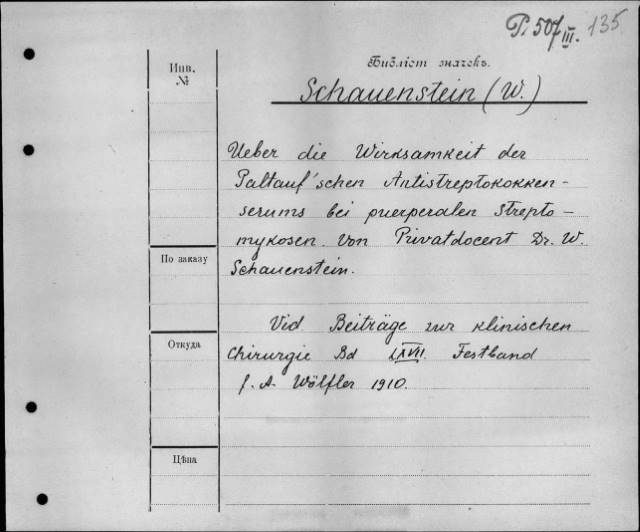 P. 507 III. 135
Библіот значекъ.
Инв.
№
Schauenstein (W.)
Ueber die Wirksamkeit der
Paltauf'schen Antistreptokokken-
serums bei puerperalen Strepto-
mykosen. Von Privatdocent Dr. W.
По заказу
Schauenstein.
Vid. Beiträge zur klinischen
Откуда
Chirurgie Bd LXVII. Festband
f. A. Wölfler 1910.
Цѣна